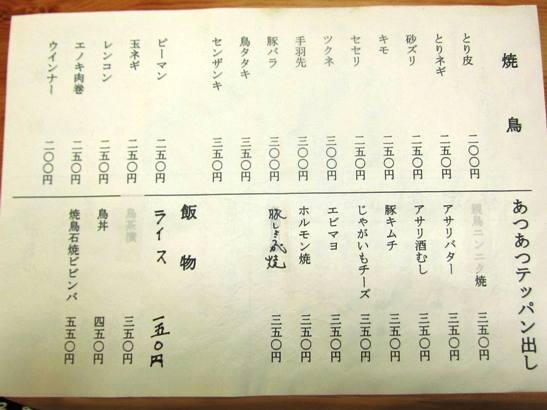 焼鳥
とり皮 二〇〇円
とりネギ 二五〇円
砂ズリ 二五〇円
キモ 二五〇円
セセリ 二五〇円
ツクネ 三〇〇円
手羽先 三〇〇円
豚バラ 三〇〇円
鳥タタキ 三五〇円
センザンキ 三五〇円
ピーマン 二五〇円
玉ネギ 二五〇円
レンコン 二五〇円
エノキ肉巻 二五〇円
ウインナー 二〇〇円
あつあつテッパン出し
鳥ニンニク焼 三五〇円
アサリバター 三五〇円
アサリ酒むし 三五〇円
豚キムチ 三五〇円
じゃがいもチーズ 三五〇円
エビマヨ 三五〇円
ホルモン焼 三五〇円
焼 三五〇円
飯物
ライス 一五〇円
鳥茶漬 三五〇円
鳥丼 四五〇円
焼鳥石焼ビビンバ 五五〇円